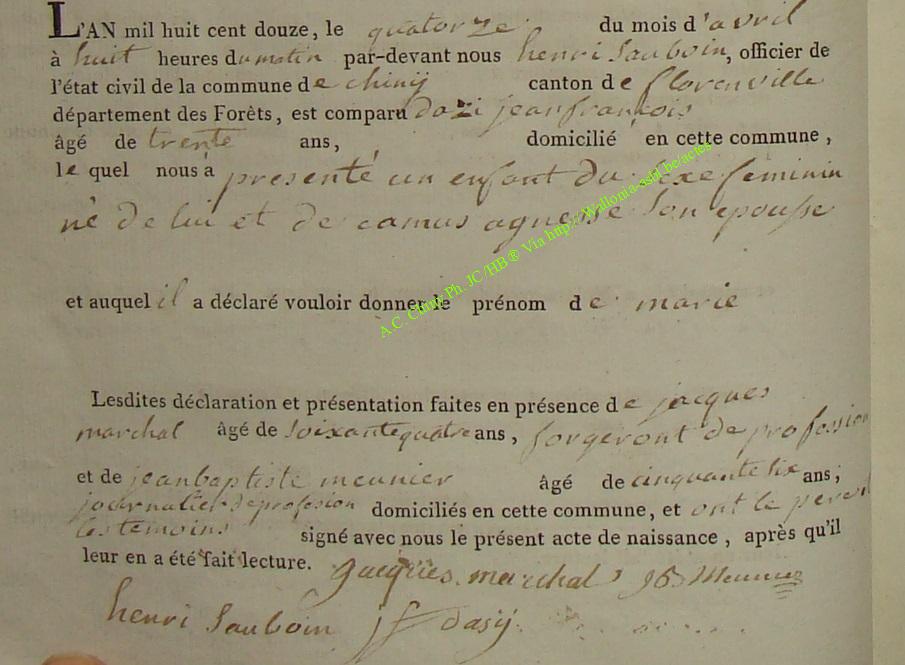 L'AN mil huit cent douze, le quatorze du mois d'avril
à huit heures du matin par-devant nous henri Sauboin, officier de
l'état civil de la commune de chinij canton de florenville
département des Forêts, est comparu dazi jean francois
âgé de trente ans, domicilié en cette commune,
le quel nous a presenté un enfant du sexe feminin
né de lui et de camus agnesse son epousse
et auquel il a déclaré vouloir donner le prénom de marie
Lesdites déclaration et présentation faites en présence de jacques
marchal âgé de soixante quatre ans, forgeront de profession
et de jean baptiste meunier âgé de cinquante six ans;
journalier de profesion domiciliés en cette commune, et ont le pere et
les temoins signé avec nous le présent acte de naissance, après qu'il
leur en a été fait lecture. jacques marchal JB Meunier
henri Sauboin jf dasij
A.C. Chiny Ph. JC/HB ® Via http://Wallonia-asbl.be/actes